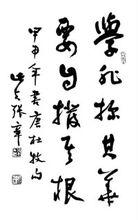 學非探其華
要自撥其根
甲申年書唐杜牧句
張